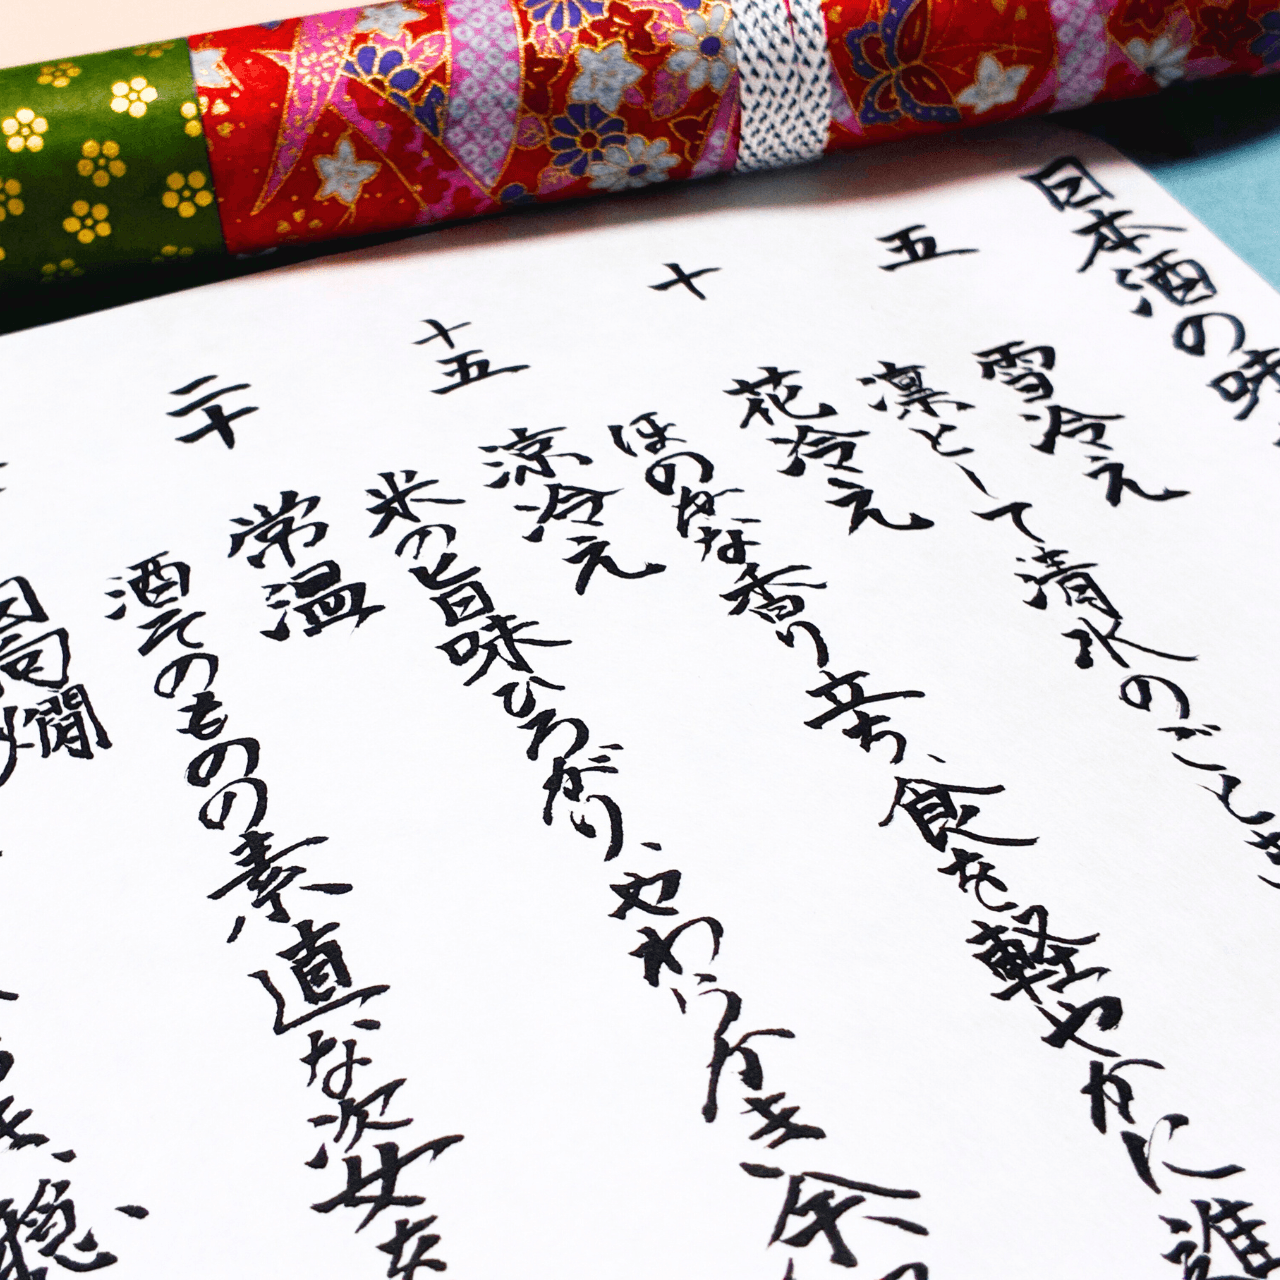 日本酒の味
五
雪冷え
凛として清水のごとき
十
花冷え
ほのかな香り立ち、食を軽やかに進
十五
涼冷え
米の旨味ひろがり、やわらかき余
二十
常温
酒そのものの素直な姿を
燗
穏